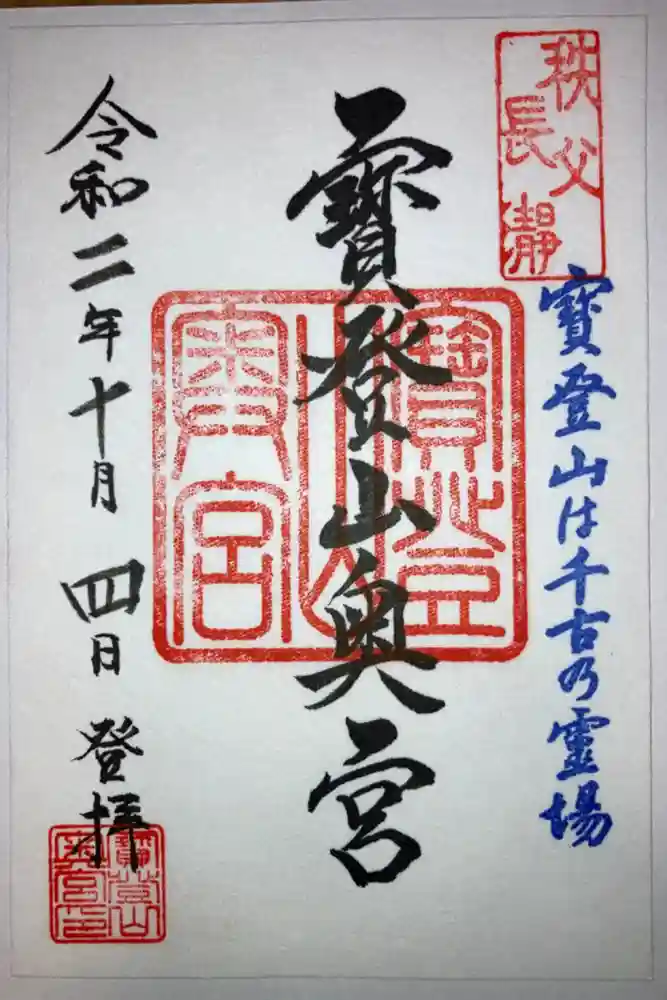 秩父
長瀞
寶登山は千古乃霊場
寶登山奥宮
寶登山
奥宮
令和二年十月四日登拝
寶登山
奥宮印